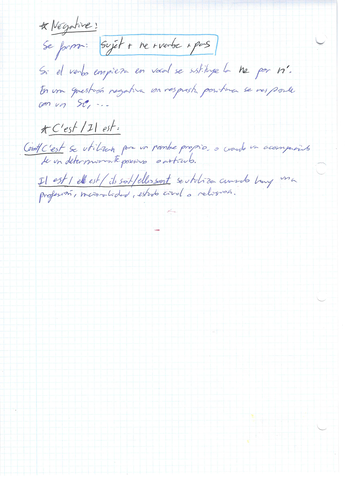 * Negative:
Se forma: Sujet + ne + verbe + pas
Si el verbo empieza en vocal se sustituye la ne por n'.
En una question negativa con respuesta positiva se responde
con un Si, ...
* C'est / Il est:
C'est se utiliza para un nombre propio, o cuando va acompañado
de un determinante posesivo o artículo.
Il est / elle est / ils sont / elles sont se utiliza cuando hay una
profesión, nacionalidad, estado civil o religiosa.